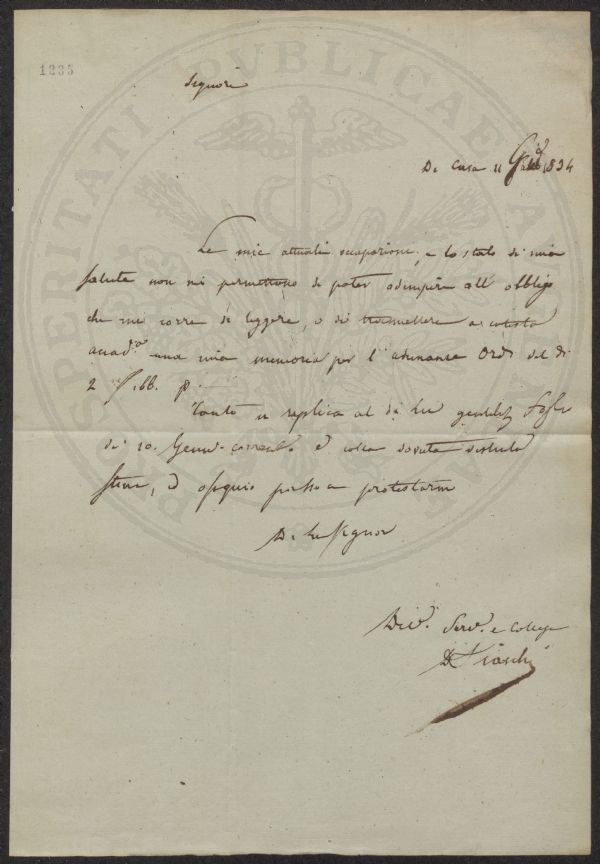 1235
Signore
Di Casa 11 1834
Le mie attuali occupazioni, e lo stato di mia
salute non mi permettono di poter adempire all' obbligo
che mi corre di leggere, o di trasmettere a cotesta
accad.a una mia memoria per l' adunanza Ord. del dì
2 Febb. p.
Tanto in replica al di Lei gentiliss. Fogl.
de' 10. Genn. corrente e colla dovuta distinta
stima, ed ossequio passo a protestarmi
Di Lei Signor
Div. Serv. e Collega
PROSPERITATI PVBLICAE AVGENDAE